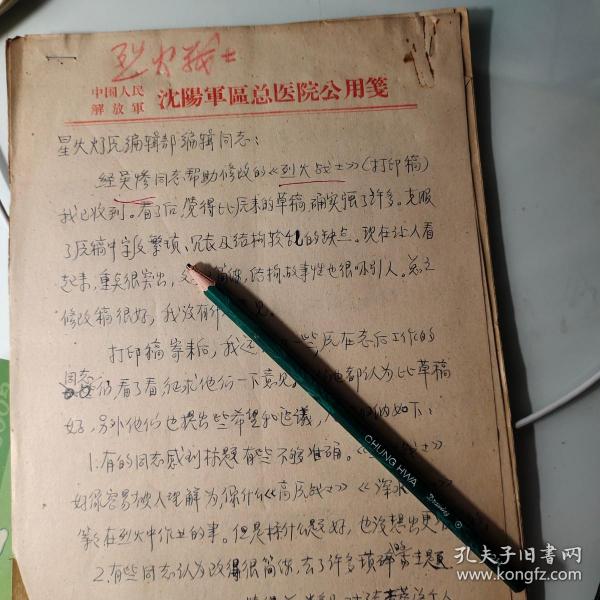 烈火战士
中国人民解放軍 沈陽軍區总医院公用箋
星火燎原编辑部编辑同志：
经吴修同志帮助修改的《列火战士》（打印稿）
我已收到。看了后，觉得比原来的草稿确实强了许多。克服
了原稿中字句繁琐、冗长及结构较乱的缺点。现在让人看
起来，重点很突出，结构故事性也很吸引人。总之
修改稿很好，我没有什 见。
打印稿寄来后，我还 一些 在志后工作的
同志们看了看，征求他们一下意见 他们也都认为比草稿
好，另外他们也提出些希望和建議， 如下：
1.有的同志感到标题有些不够准确。《 》
好像容易被人理解为，像什么《高 战士》《
等在烈火中作业的事。但是探什么题好，也没想出更
2.有些同志认为改得很简 ，去了许多琐碎 主题
CHUNG HWA
Drawing
孔夫子旧书网
www.kongfz.com